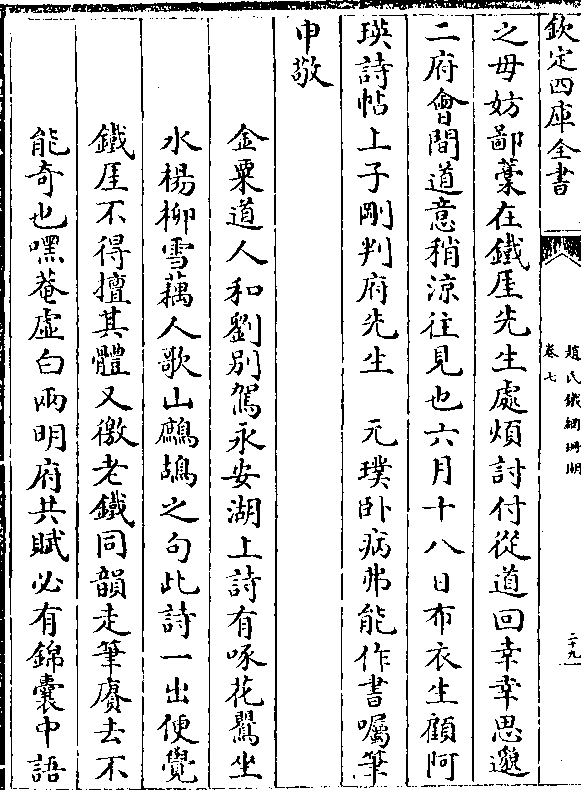 欽定四庫全書
趙氏鐵網珊瑚
卷七
二十九
之毋妨鄙藁在鐵厓先生處煩討付從道回幸幸思邈
二府會間道意稍涼往見也六月十八日布衣生顧阿
瑛詩帖上子剛判府先生　元璞卧病弗能作書囑筆
申敬
金粟道人和劉別駕永安湖上詩有啄花鸎坐
水楊柳雪藕人歌山鷓鴣之句此詩一出便覺
鐵厓不得擅其體又徼老鐵同韻走筆賡去不
能奇也嘿菴虛白兩明府共賦必有錦囊中語